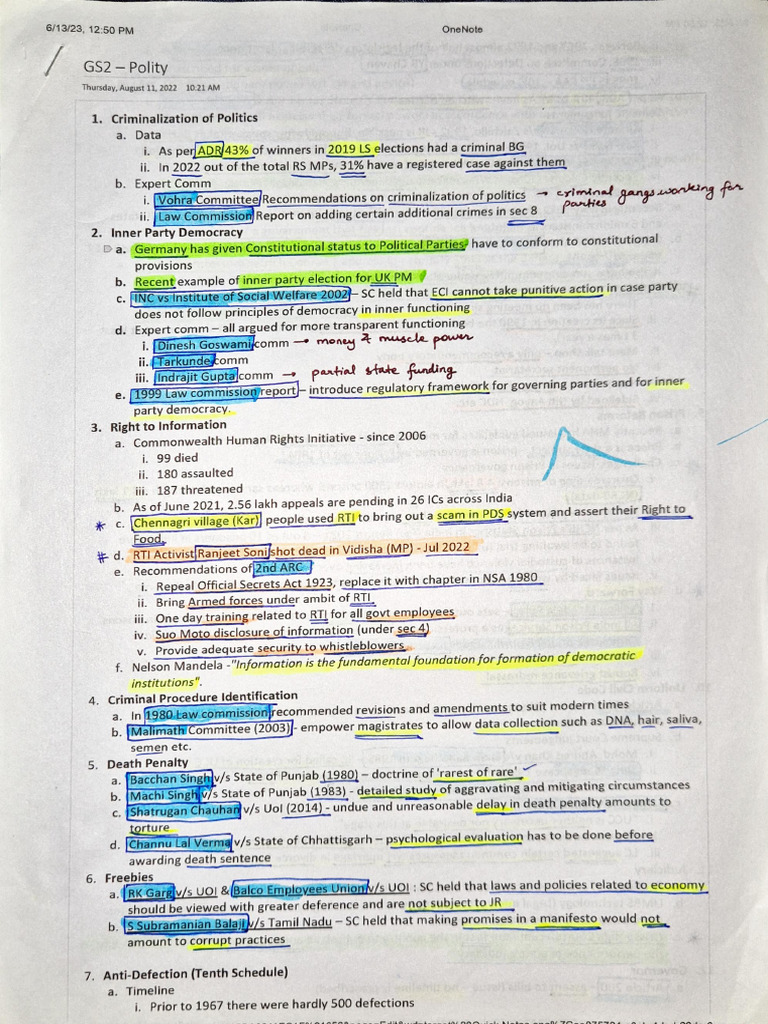 6/13/23, 12:50 PM
OneNote
GS2 – Polity
Thursday, August 11, 2022 10:21 AM
1. Criminalization of Politics
a. Data
i. As per ADR 43% of winners in 2019 LS elections had a criminal BG
ii. In 2022 out of the total RS MPs, 31% have a registered case against them
b. Expert Comm
i. Vohra Committee Recommendations on criminalization of politics → criminal gangs working for
parties
ii. Law Commission Report on adding certain additional crimes in sec 8
2. Inner Party Democracy
a. Germany has given Constitutional status to Political Parties, have to conform to constitutional
provisions
b. Recent example of inner party election for UK PM
c. INC vs Institute of Social Welfare 2002 – SC held that ECI cannot take punitive action in case party
does not follow principles of democracy in inner functioning
d. Expert comm – all argued for more transparent functioning
i. Dinesh Goswami comm → money & muscle power
ii. Tarkunde comm
iii. Indrajit Gupta comm → partial state funding
e. 1999 Law commission report – introduce regulatory framework for governing parties and for inner
party democracy.
3. Right to Information
a. Commonwealth Human Rights Initiative - since 2006
i. 99 died
ii. 180 assaulted
iii. 187 threatened
b. As of June 2021, 2.56 lakh appeals are pending in 26 ICs across India
* c. Chennagri village (Kar) people used RTI to bring out a scam in PDS system and assert their Right to
Food.
# d. RTI Activist Ranjeet Soni shot dead in Vidisha (MP) - Jul 2022
e. Recommendations of 2nd ARC
i. Repeal Official Secrets Act 1923, replace it with chapter in NSA 1980
ii. Bring Armed forces under ambit of RTI
iii. One day training related to RTI for all govt employees
iv. Suo Moto disclosure of information (under sec 4)
v. Provide adequate security to whistleblowers
f. Nelson Mandela -"Information is the fundamental foundation for formation of democratic
institutions".
4. Criminal Procedure Identification
a. In 1980 Law commission recommended revisions and amendments to suit modern times
b. Malimath Committee (2003) - empower magistrates to allow data collection such as DNA, hair, saliva,
semen etc.
5. Death Penalty
a. Bacchan Singh v/s State of Punjab (1980) – doctrine of 'rarest of rare'
b. Machi Singh v/s State of Punjab (1983) - detailed study of aggravating and mitigating circumstances
c. Shatrugan Chauhan v/s UoI (2014) - undue and unreasonable delay in death penalty amounts to
torture
d. Channu Lal Verma v/s State of Chhattisgarh – psychological evaluation has to be done before
awarding death sentence
6. Freebies
a. RK Garg v/s UOI & Balco Employees Union v/s UOI : SC held that laws and policies related to economy
should be viewed with greater deference and are not subject to JR
b. S Subramanian Balaji v/s Tamil Nadu – SC held that making promises in a manifesto would not
amount to corrupt practices
7. Anti-Defection (Tenth Schedule)
a. Timeline
i. Prior to 1967 there were hardly 500 defections